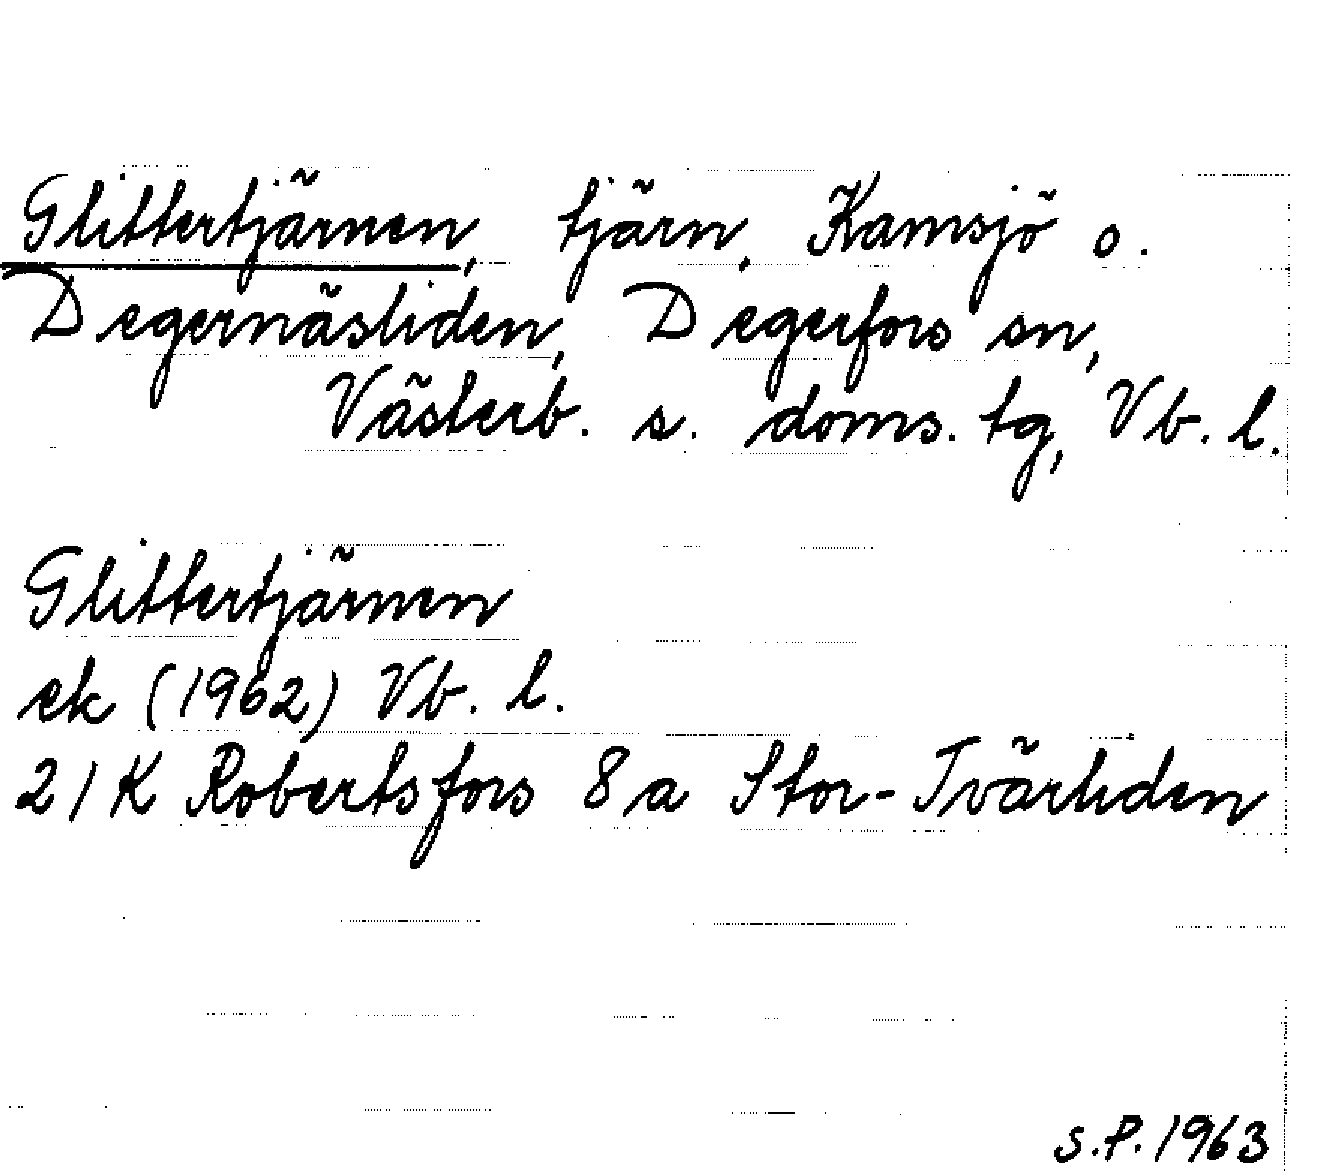 Glittertjärnen, tjärn, Kamsjö o.
Degernäsliden, Degerfors sn,
Västerb. s. doms. tg, Vb. l.
Glittertjärnen
ek (1962) Vb. l.
21K Robertsfors 8a Stor-Tvärliden
S.P. 1963